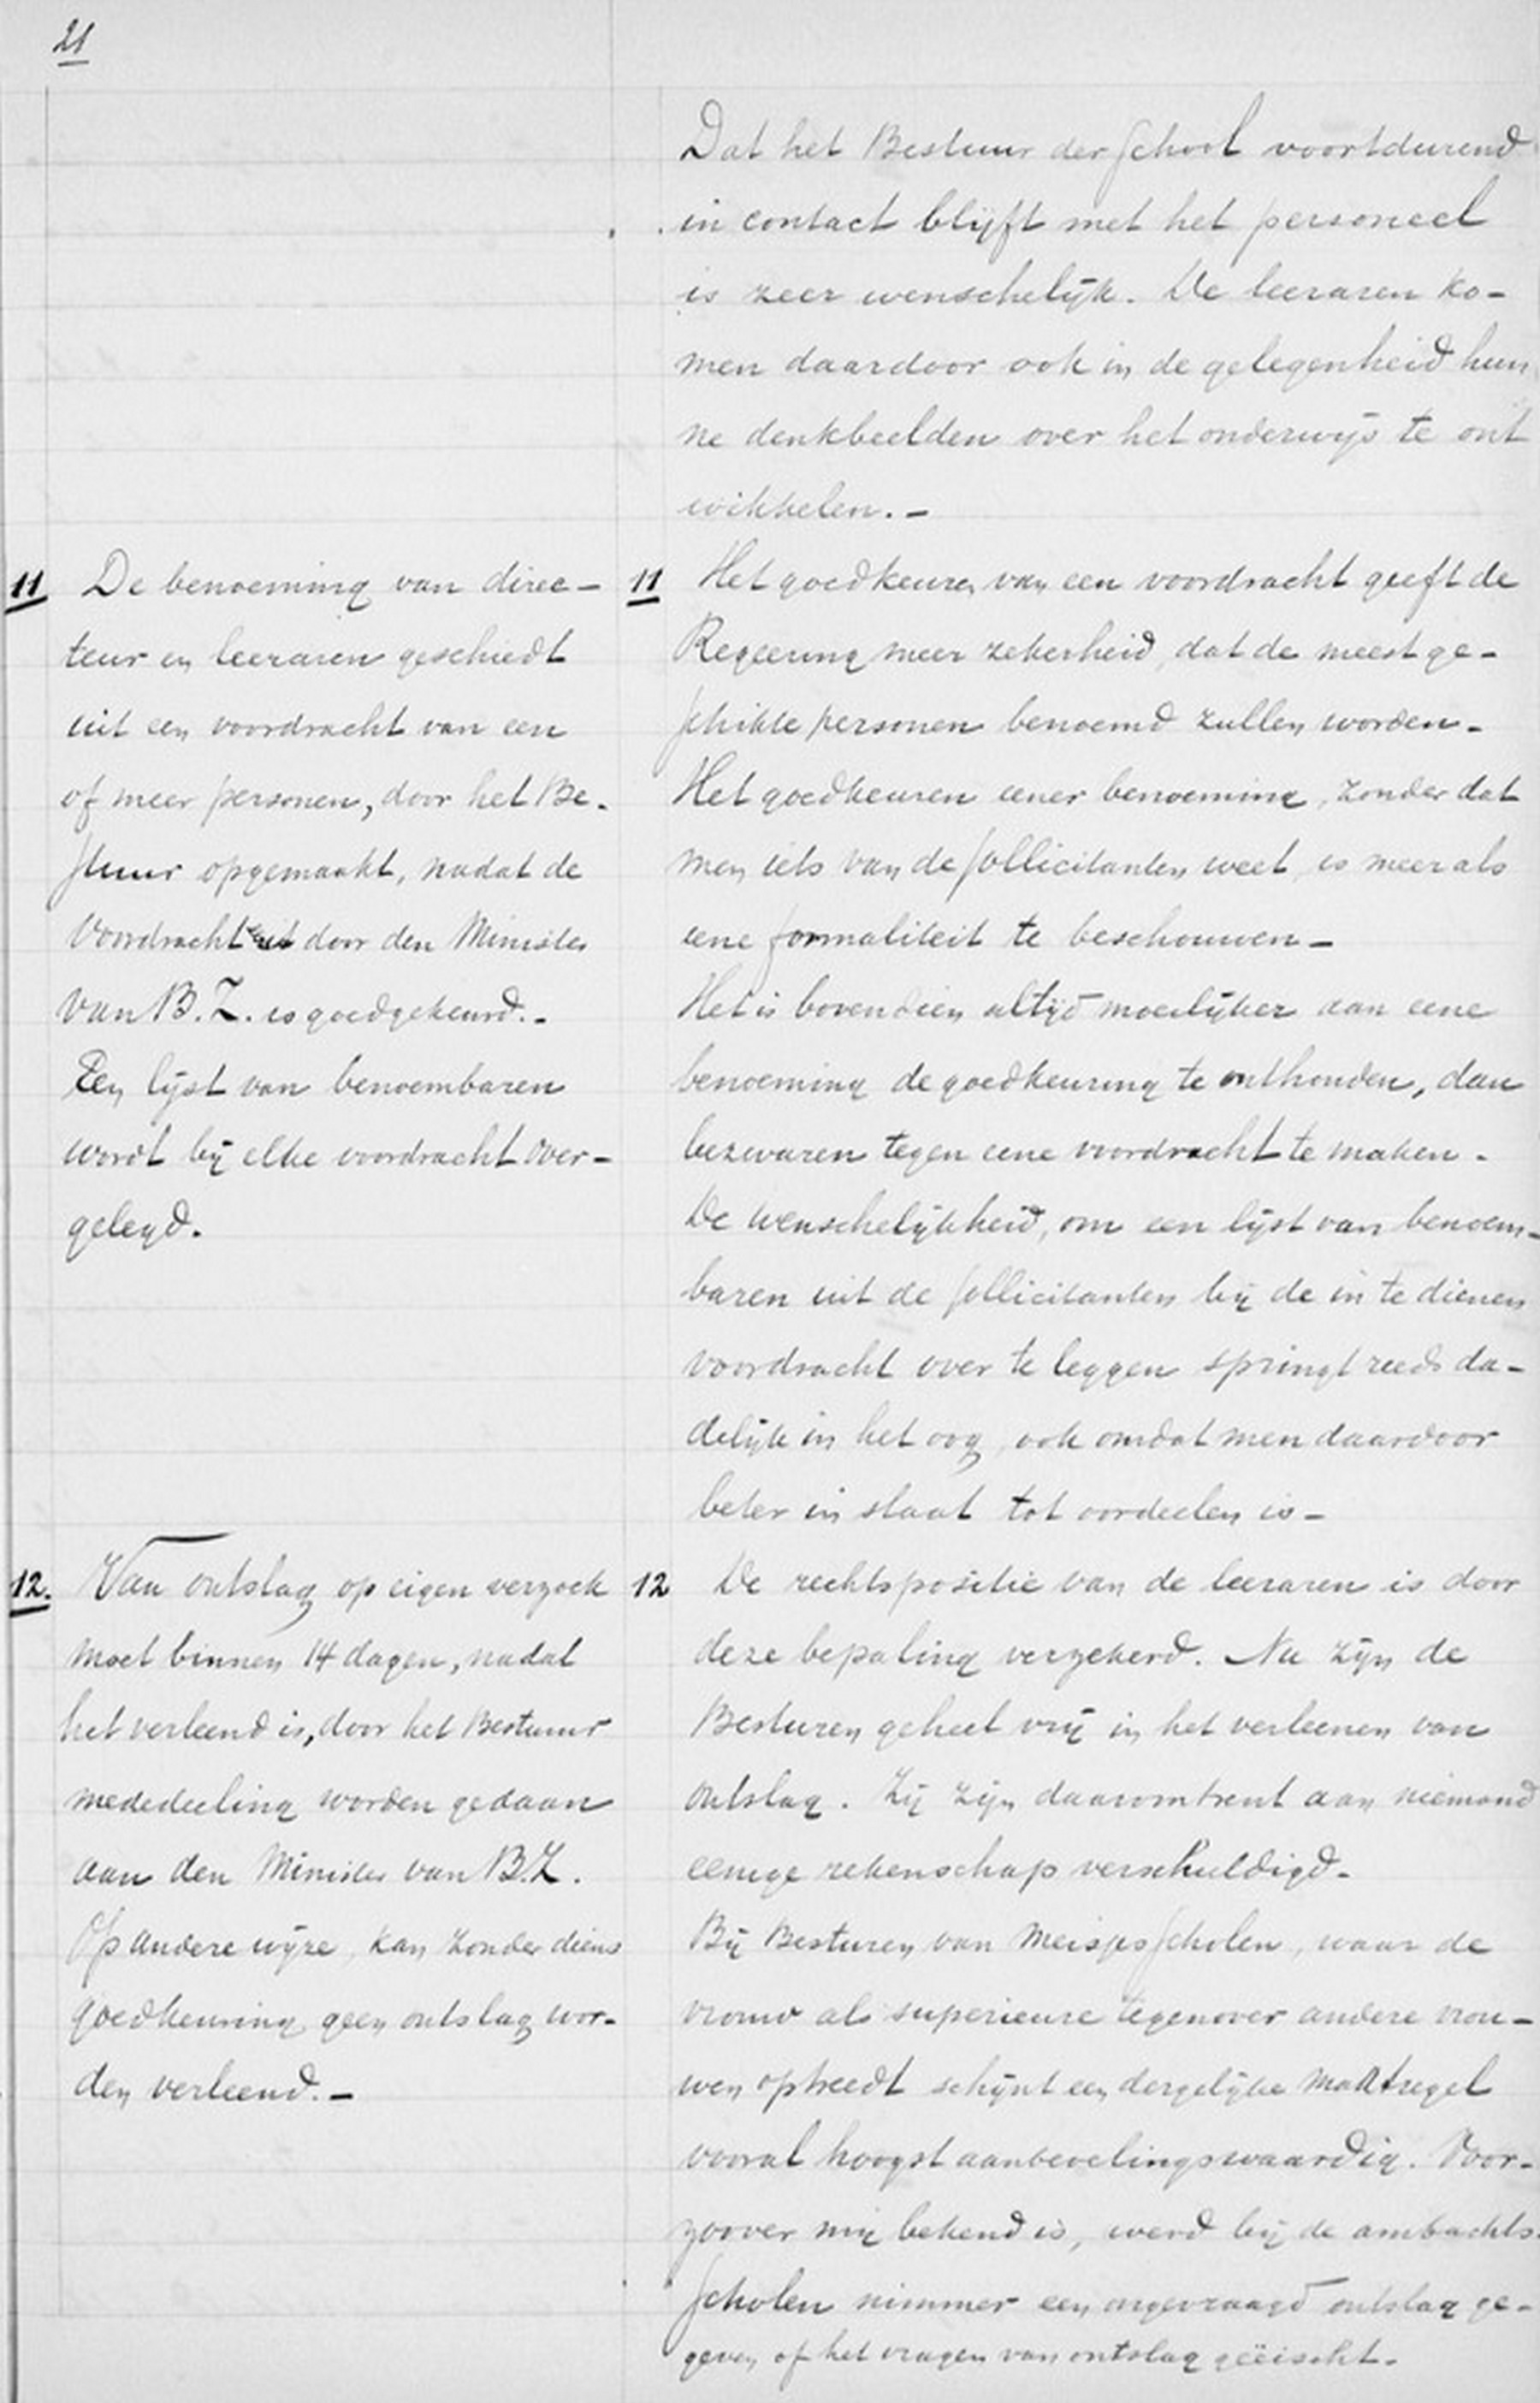 21
Dat het Bestuur der school voortdurend
in contact blijft met het personeel
is zeer wenschelijk. De leeraren ko-
men daardoor ook in de gelegenheid hun
ne denkbeelden over het onderwijs te ont
wikkelen. -
11 De benoeming van direc-
teur en leeraren geschiedt
uit een voordracht van een
of meer personen, door het Be-
stuur opgemaakt, nadat de
Voordracht door den Minister
van B.Z. is goedgekeurd. -
Een lijst van benoembaren
wordt bij elke voordracht over-
gelegd.
11 Het goedkeuren van een voordracht geeft de
Regeering meer zekerheid, dat de meest ge-
schikte personen benoemd zullen worden -
Het goedkeuren eener benoeming, zonder dat
men iets van de sollicitanten weet, is meer als
eene formaliteit te beschouwen -
Het is bovendien altijd moeilijker aan eene
benoeming de goedkeuring te onthouden, dan
bezwaren tegen eene voordracht te maken -
De wenschelijkheid, om een lijst van benoem-
baren uit de sollicitanten bij de in te dienen
voordracht over te leggen springt reeds da-
delijk in het oog, ook omdat men daardoor
beter in staat tot oordeelen is -
12. Van ontslag op eigen verzoek
moet binnen 14 dagen, nadat
het verleend is, door het Bestuur
mededeeling worden gedaan
aan den Minister van B.Z.
Op andere wijze, kan zonder diens
goedkeuring geen ontslag wor-
den verleend. -
12 De rechtspositie van de leeraren is door
deze bepaling verzekerd. Nu zijn de
Besturen geheel vrij in het verleenen van
ontslag. Zij zijn daaromtrent aan niemand
eenige rekenschap verschuldigd -
Bij Besturen van Meisjesscholen, waar de
vrouw als superieure tegenover andere vrou-
wen optreedt schijnt een dergelijke maatregel
vooral hoogst aanbevelingswaardig. Voor-
zoover mij bekend is, werd bij de ambachts-
scholen nimmer een ongevraagd ontslag ge-
geven of het vragen van ontslag geëischt -